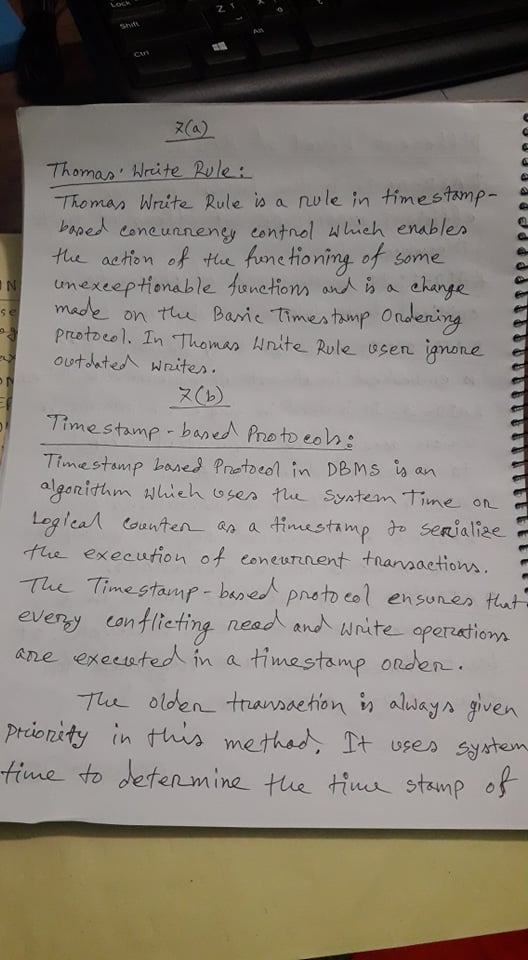 Lock
Shift
Z
Ctrl
Alt
7(a)
Thomas' Write Rule:
Thomas Write Rule is a rule in timestamp-
based concurrency control which enables
the action of the functioning of some
unexceptionable functions and is a change
made on the Basic Timestamp Ordering
Protocol. In Thomas Write Rule user ignore
outdated writes.
7(b)
Timestamp-based Protocols:
Timestamp based Protocol in DBMS is an
algorithm which uses the System Time or
Logical Counter as a timestamp to serialize
the execution of concurrent transactions.
The Timestamp-based protocol ensures that
every conflicting read and write operations
are executed in a timestamp order.
The older transaction is always given
priority in this method. It uses system
time to determine the time stamp of